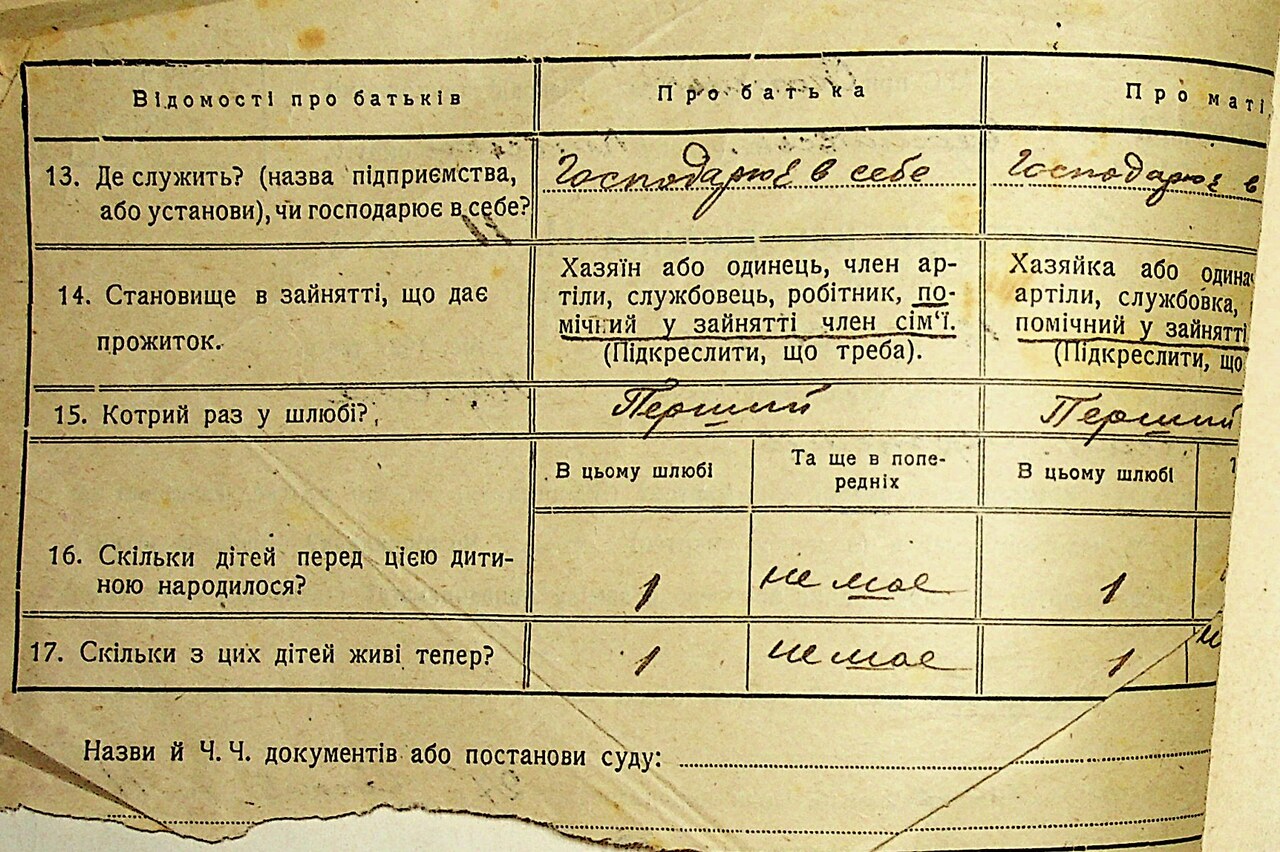 Відомості про батьків
Про батька
Про маті
13. Де служить? (назва підприємства,
або установи), чи господарює в себе?
Господарює в себе
Господарює в
14. Становище в зайнятті, що дає
прожиток.
Хазяїн або одинець, член ар-
тіли, службовець, робітник, по-
мічний у зайнятті член сім'ї.
(Підкреслити, що треба).
Хазяйка або одинач
артіли, службовка,
помічний у зайнятті
(Підкреслити, що
15. Котрий раз у шлюбі?
Перший
Перший
В цьому шлюбі
Та ще в попе-
редніх
В цьому шлюбі
16. Скільки дітей перед цією дити-
ною народилося?
1
не має
1
17. Скільки з цих дітей живі тепер?
1
не має
1
Назви й Ч. Ч. документів або постанови суду: